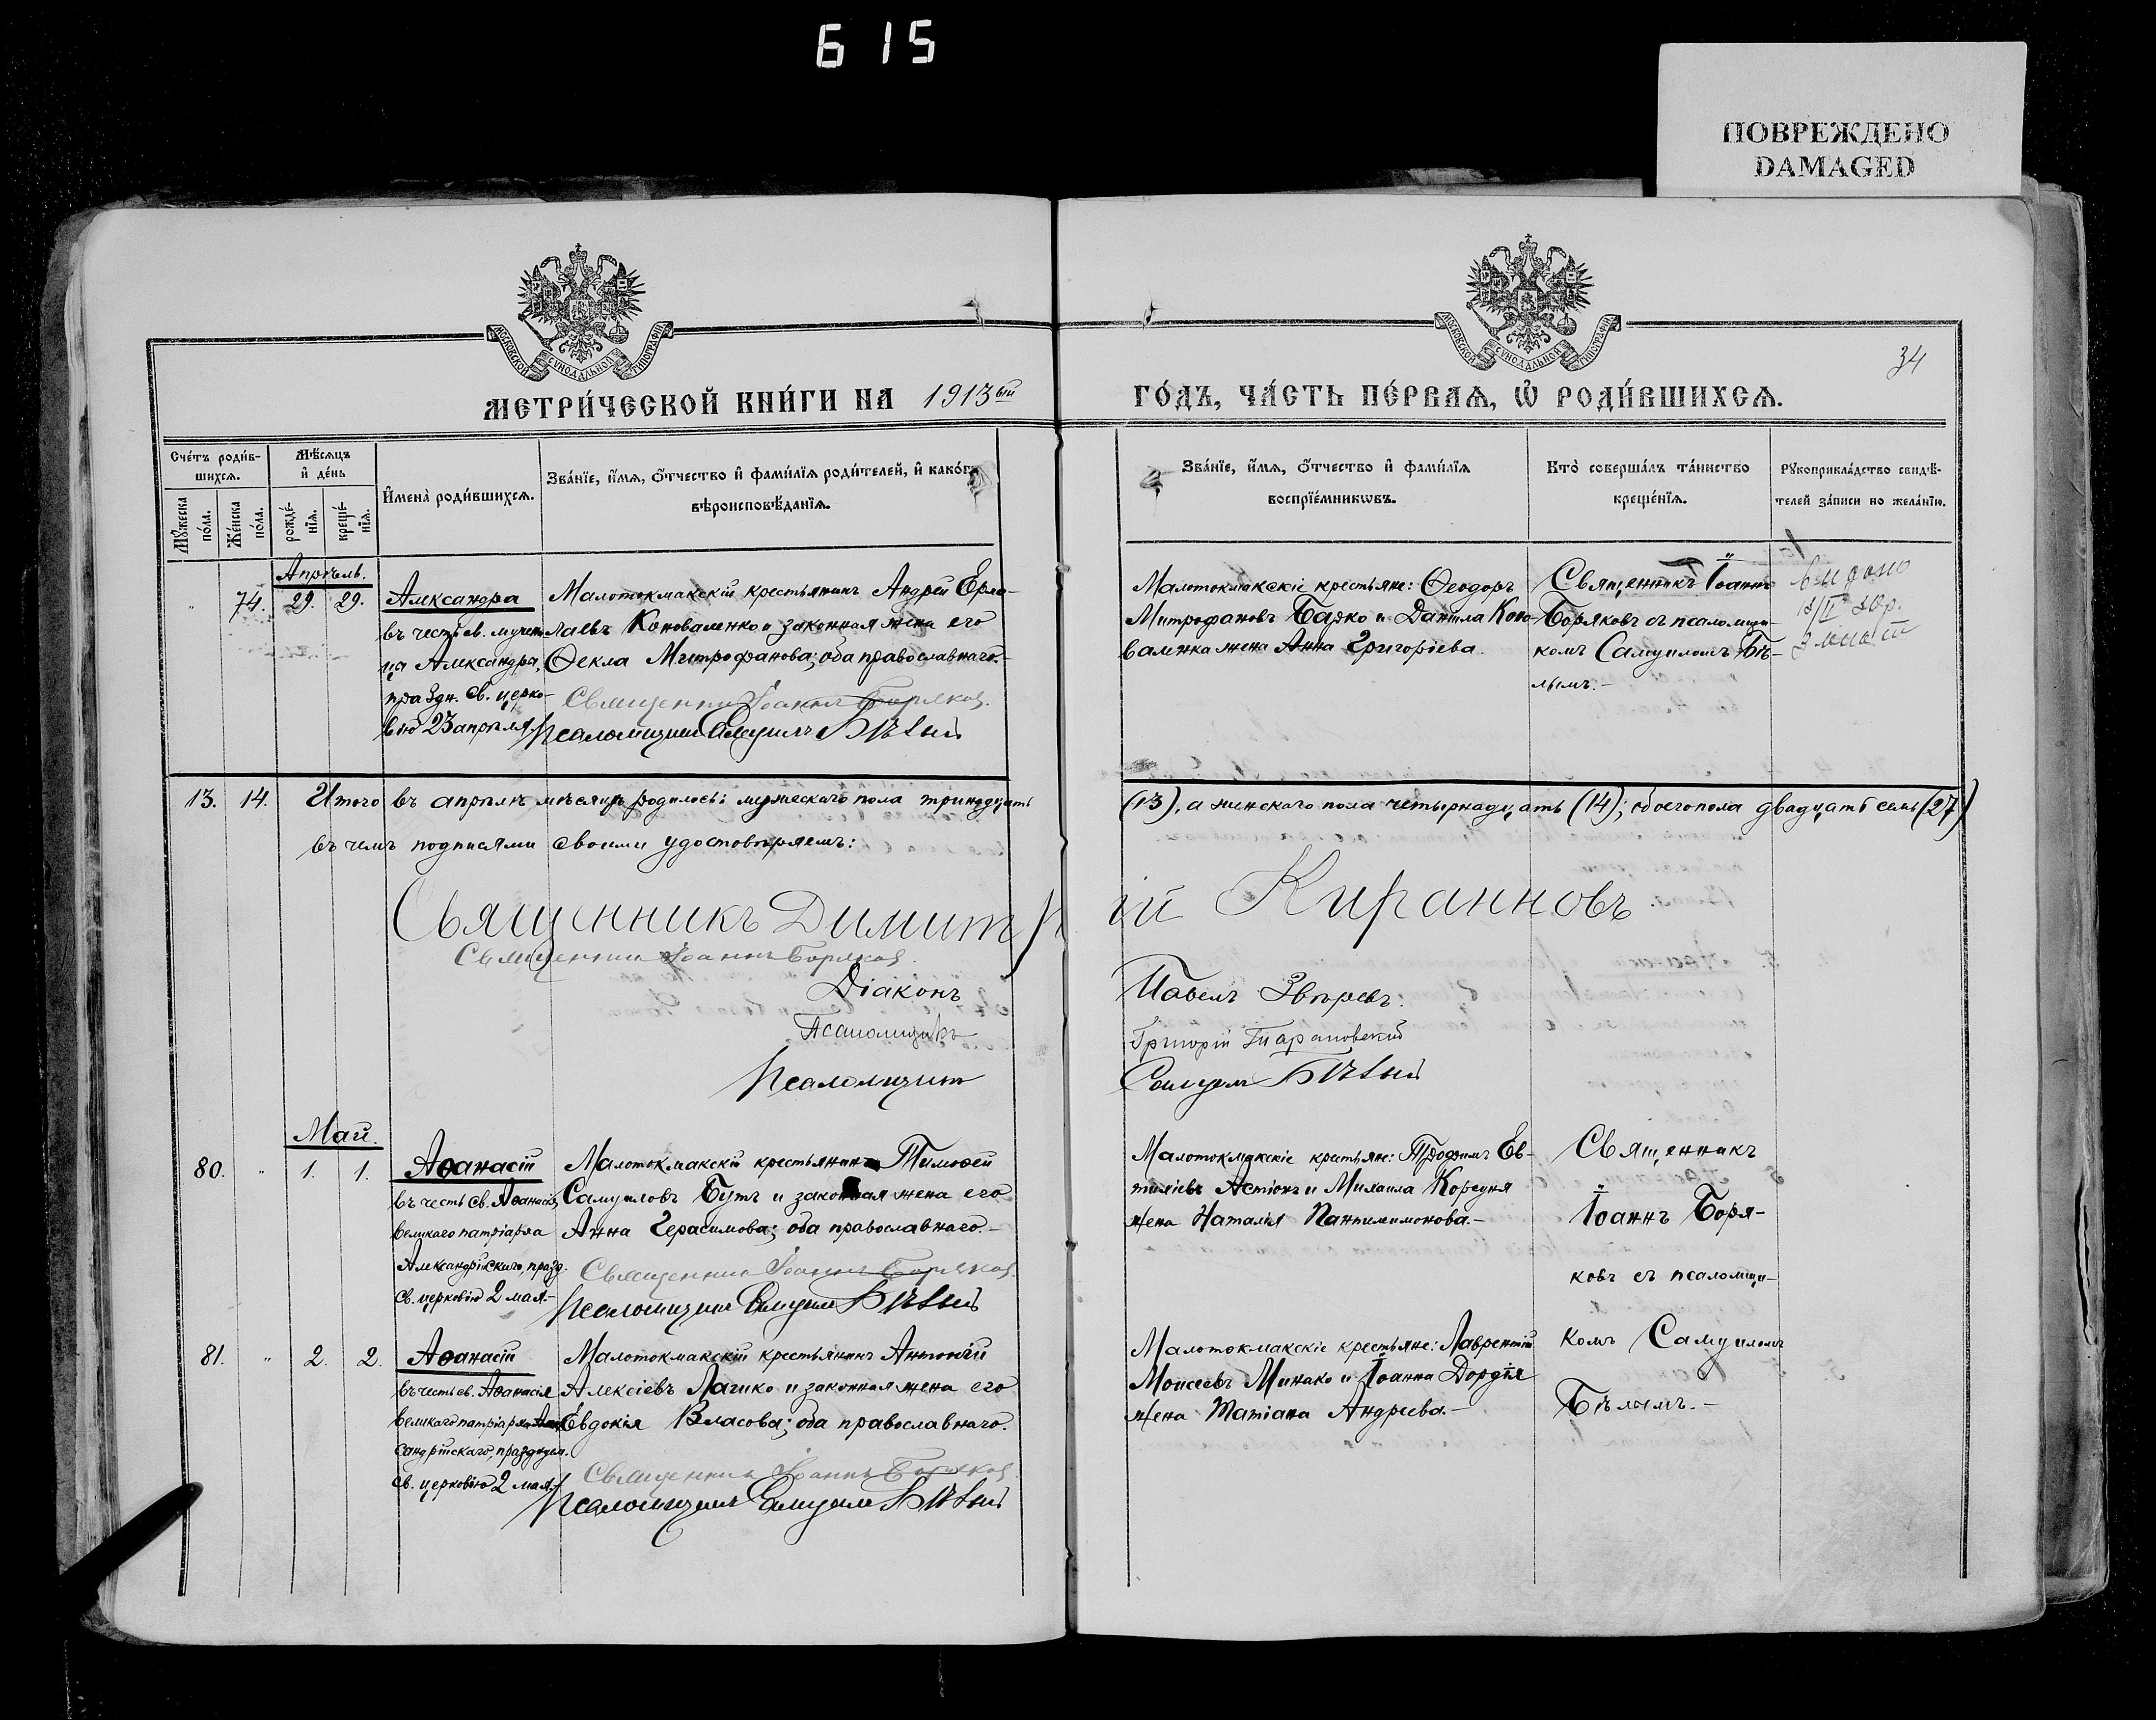 615
ПОВРЕЖДЕНО
DAMAGED
МОСКОВСКОЙ СѴНОДАЛЬНОЙ ТИПОГРАФІИ
МОСКОВСКОЙ СѴНОДАЛЬНОЙ ТИПОГРАФІИ
34
МЕТРИ́ЧЕСКОЙ КНИ́ГИ НА 1913ый
ГО́ДЪ, ЧА́СТЬ ПЕ́РВАЯ, Ѽ РОДИ́ВШИХСЯ.
Сче́тъ роди́вшихся.
Мѣ́сяцъ и҆ де́нь
Мꙋ́жеска по́ла.
Же́нска по́ла.
рожде́нїя.
креще́нїя.
И҆мена̀ роди́вшихся.
Зва́нїе, и҆́мя, ѻ҆́тчество и҆ фами́лїя роди́телей, и҆ како́гѡ
вѣроисповѣ́данїя.
Зва́нїе, и҆́мя, ѻ҆́тчество и҆ фами́лїя
воспрїе́мникѡвъ.
Кто̀ соверша́лъ та́инство
креще́нїя.
Рꙋкоприкла́дство свидѣ́телей за́писи по жела́нїю.
Апрѣль.
74. 29. 29.
Александра
въ честь св. мучени-
ца Александра,
праздн. св. церко-
вію 23 апрѣля.
Малотокмакскій крестьянинъ Андрей Ермо-
лаевъ Коноваленко и законная жена его
Ѳекла Митрофанова; оба православнаго.
Священникъ Іоаннъ Боряковъ
Псаломщикъ Самуилъ Бѣлый
Малотокмакскіе крестьяне: Ѳеодоръ
Митрофановъ и Данила Коно-
валенка жена Анна Григоріева.
Священникъ Іоаннъ
Боряковъ съ псаломщи-
комъ Самуиломъ Бѣ-
лымъ.
13. 14. Итого въ апрѣлѣ мѣсяцѣ родилось: мужескаго пола тринадцать
(13), а женскаго пола четырнадцать (14); обоего пола двадцать семь (27)
въ чемъ подписями своими удостовѣряемъ:
Священникъ Димитрій Кираннов
Священникъ Іоаннъ Боряковъ
Діаконъ Павелъ Звѣревъ.
Псаломщикъ Григорій Тарановскій
Псаломщикъ Самуилъ Бѣлый
Май.
80. " 1. 1.
Аѳанасій
въ честь св. Аѳанасія,
великаго патріарха
Александрійскаго, празд.
св. церковію 2 мая.-
Малотокмакскій крестьянинъ Тимоѳей
Самуиловъ Бутъ и законная жена его
Анна Герасимова; оба православнаго.-
Священникъ Іоаннъ Боряковъ
Псаломщикъ Самуилъ Бѣлый
Малотокмакскіе крестьяне: Трофимъ Ев-
тихіевъ и Михаила Корсуня
жена Наталія Пантилимонова.-
Священникъ
Іоаннъ Боря-
ковъ съ псаломщи-
комъ Самуиломъ
Бѣлымъ.-
81. " 2. 2.
Аѳанасій
въ честь св. Аѳанасія
великаго патріарха Алек-
сандрійскаго, празднуем.
св. церковію 2 мая.
Малотокмакскій крестьянинъ Антоній
Алексіевъ Лагико и законная жена его
Евдокія Власова; оба православнаго.
Священникъ Іоаннъ Боряковъ
Псаломщикъ Самуилъ Бѣлый
Малотокмакскіе крестьяне: Лаврентій
Моисеевъ Минако и Іоанна Дордія
жена Татіана Андреева.-